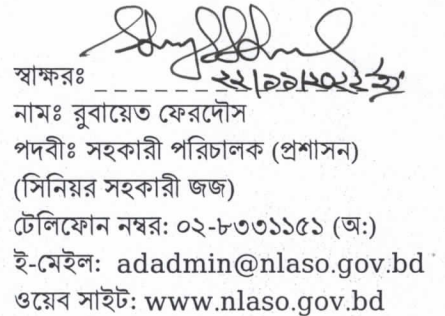 স্বাক্ষরঃ
২২/১১/২০২২ ইং
নামঃ রুবায়েত ফেরদৌস
পদবীঃ সহকারী পরিচালক (প্রশাসন)
(সিনিয়র সহকারী জজ)
টেলিফোন নম্বর: ০২-৮৩৩১১৫১ (অ:)
ই-মেইল: adadmin@nlaso.gov.bd
ওয়েব সাইট: www.nlaso.gov.bd